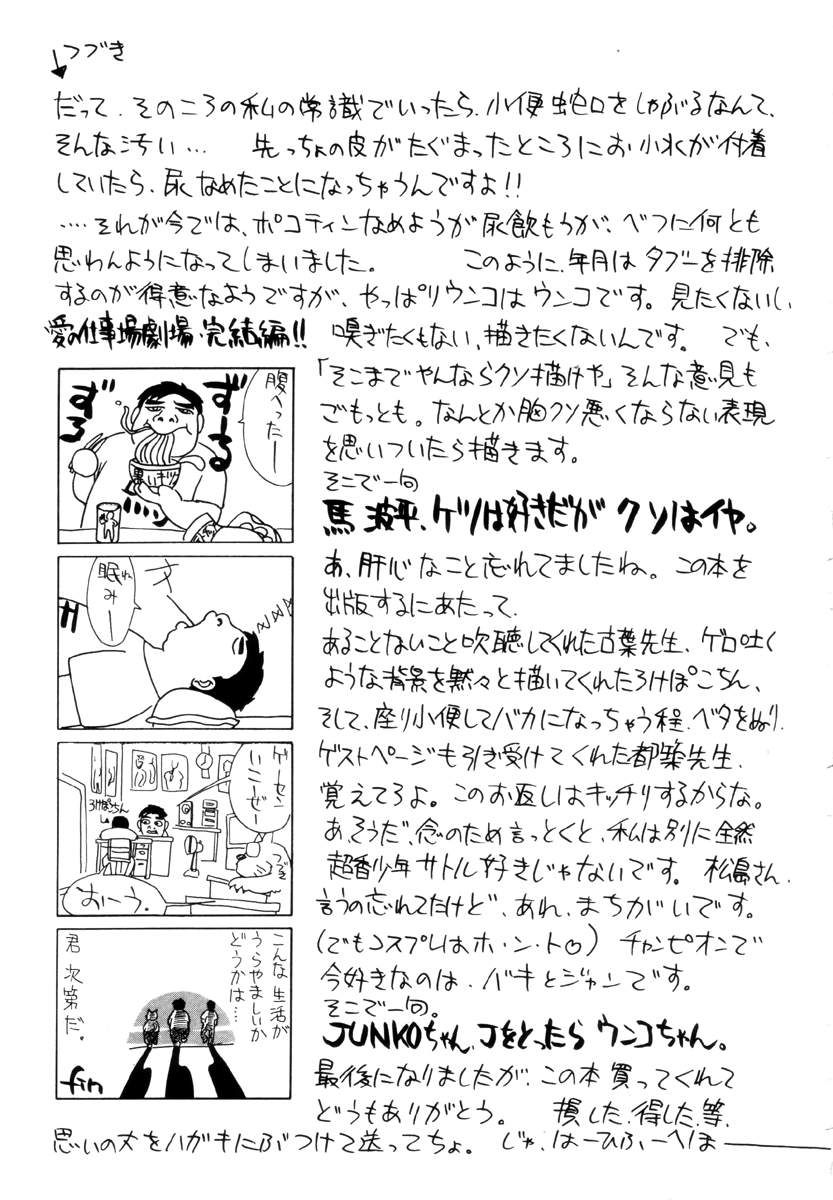 つづき
だって、そのころの私の常識でいったら、小便蛇口をしゃぶるなんて、
そんな汚い… 先っちょの皮がたぐまったところにお小水が付着
していたら、尿なめたことになっちゃうんですよ!!
‥‥それが今では、ポコティンなめようが尿飲もうが、べつに何とも
思わんようになってしまいました。 このように、年月はタブーを排除
するのが得意なようですが、やっぱりウンコはウンコです。見たくないし、
嗅ぎたくもない、描きたくないんです。 でも、
「そこまでやんならクソ描けや」そんな意見も
ごもっとも。なんとか胸クソ悪くならない表現
を思いついたら描きます。
そこで一句
馬並平、ケツは好きだが クソはイヤ。
あ、肝心なこと忘れてましたね。この本を
出版するにあたって、
あることないこと吹聴してくれた古葉先生、ゲロ吐く
ような背景を黙々と描いてくれたろけぽこちん、
そして、座り小便してバカになっちゃう程、ベタをぬり、
ゲストページも引き受けてくれた都築先生、
覚えてろよ。このお返しはキッチリするからな。
あ、そうだ、念のため言っとくと、私は別に全然
超香少年サトル好きじゃないです。 松島さん、
言うの忘れてたけど、あれ、まちがいです。
(でもコスプレはホ・ン・ト♡) チャンピオンで
今好きなのは、バキとジャンです。
そこで一句。
JUNKOちゃん、Jをとったら ウンコちゃん。
最後になりましたが、この本買ってくれて
どうもありがとう。 損した、得した、等、
思いの丈をハガキにぶつけて送ってちょ。 じゃ、はーひふーへほま――
愛の仕事場劇場・完結編!!
腹へったー
ずーる
ずろ
眠みー
れ
ゲーセン
いこーぜー
ろけぽこちん
おーう。
こんな生活が
うらやましいか
どうかは…
君次第だ。
fin